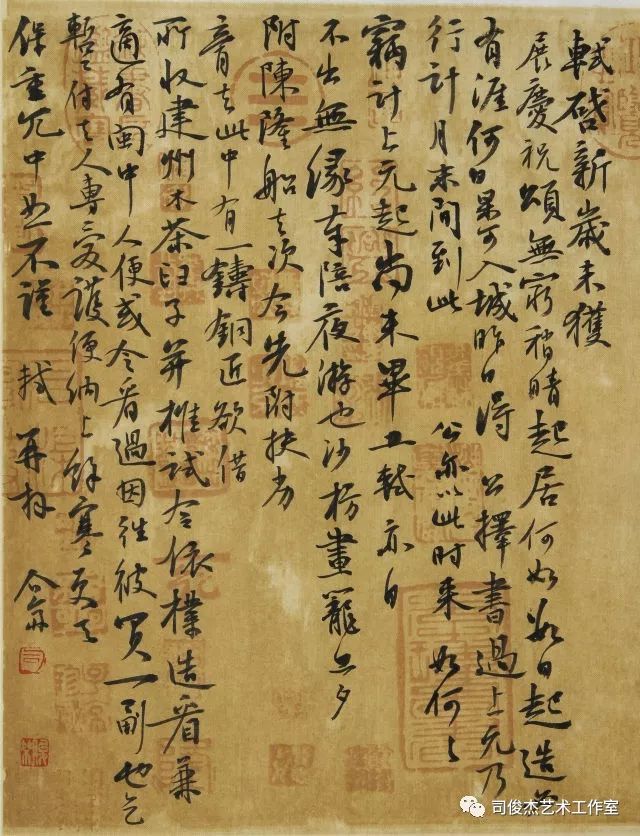 軾啓新歲未獲
展慶祝頌無窮稍晴起居何如數日起造必
有涯何日果可入城昨日得 公擇書過上元乃
行計月末間到此 公亦以此時來 如何〻
竊計上元起尚未畢工軾亦自
不出無緣奉陪夜游也沙枋畫籠旦夕
附陳隆船去次今先附扶劣
膏去此中有一鑄銅匠欲借
所收建州木茶臼子并椎試令依樣造看兼
適有閩中人便或令看過因往彼買一副也乞
暫付去人專愛護便納上餘寒更乞
保重冗中恕不謹 軾 再拜
司俊杰艺术工作室